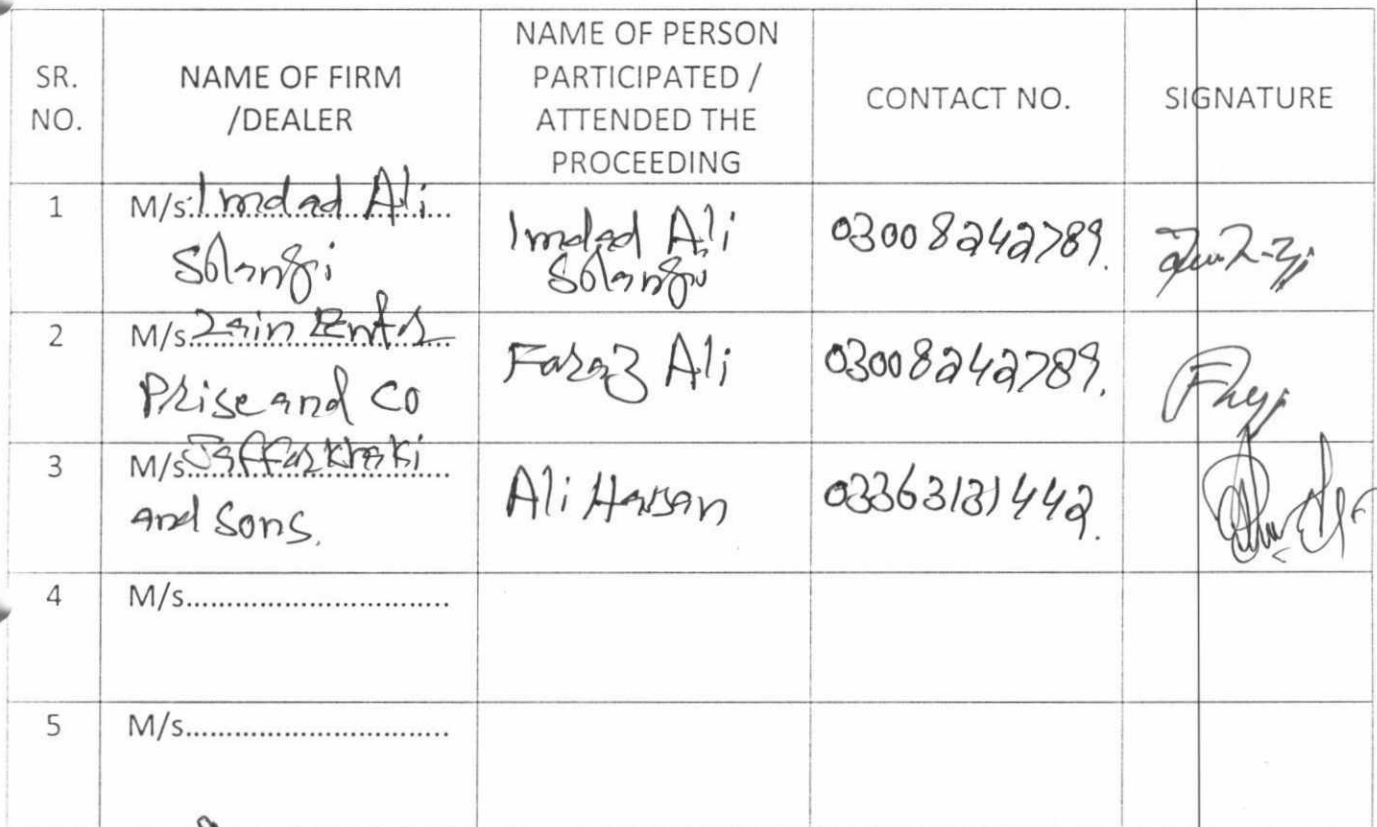 SR. NO.
NAME OF FIRM /DEALER
NAME OF PERSON PARTICIPATED / ATTENDED THE PROCEEDING
CONTACT NO.
SIGNATURE
1
M/s. Imdad Ali
Solangi
Imdad Ali
Solangi
03008242789.
2
M/s. Zain Enter
Prise and Co
Faraz Ali
03008242789.
3
M/s. Jaffar Khaki
and Sons.
Ali Hassan
03363131442.
4
M/s..............................
5
M/s..............................